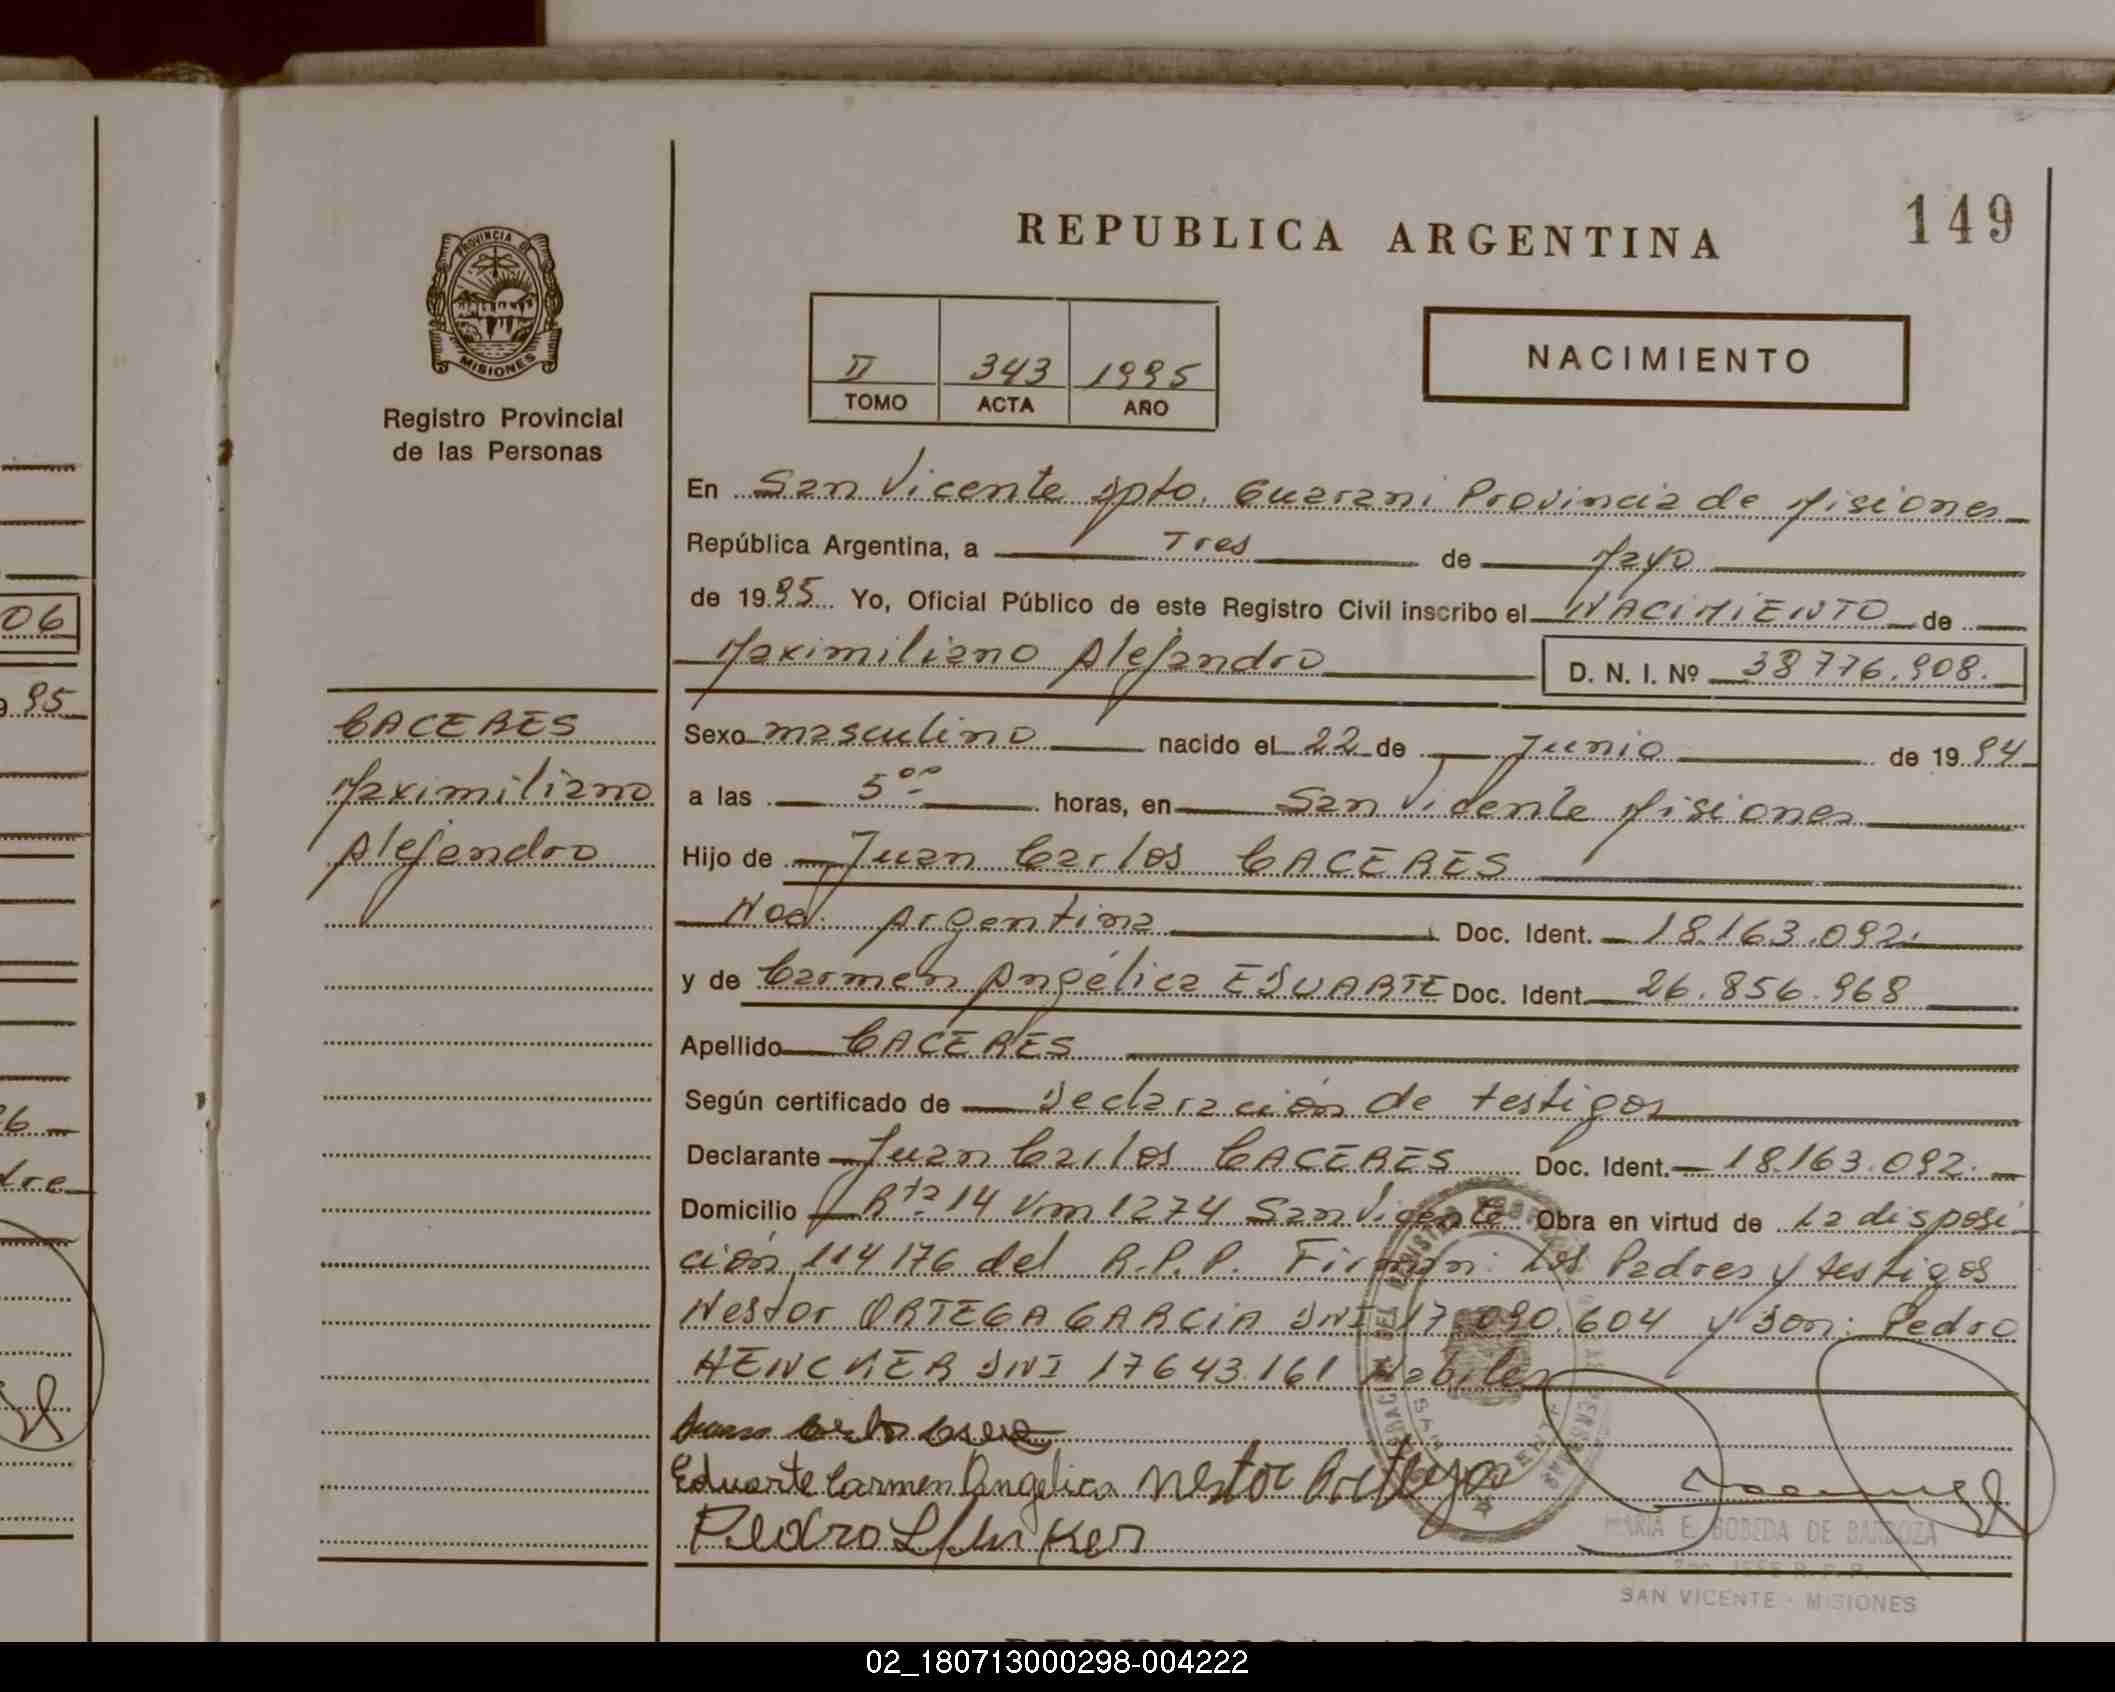 149
REPUBLICA ARGENTINA
PROVINCIA DE
MISIONES
Registro Provincial
de las Personas
II 343 1995
TOMO ACTA AÑO
NACIMIENTO
En San Vicente Dpto. Guarani Provincia de Misiones
República Argentina, a Tres de Mayo
de 1995 Yo, Oficial Público de este Registro Civil inscribo el NACIMIENTO de
Maximiliano Alejandro D. N. I. Nº 38776.908.
CACERES
Maximiliano
Alejandro
Sexo masculino nacido el 22 de Junio de 1994
a las 5 00 horas, en San Vicente Misiones
Hijo de Juan Carlos CACERES
Nac. Argentina Doc. Ident. 18.163.092.
y de Carmen Angélica EDUARTE Doc. Ident. 26.856.968
Apellido CACERES
Según certificado de Declaración de testigos
Declarante Juan Carlos CACERES Doc. Ident. 18.163.092.
Domicilio Rta. 14 Km 1274 San Vicente Obra en virtud de La disposi
ción 114176 del R.P.P. Firman: Los Padres y testigos
Nestor ORTEGA GARCIA DNI 17.090.604 y Don: Pedro
HENCKER DNI 17643.161 Habiles
Eduarte Carmen Angelica Nestor Ortega
Pedro
MARIA E. BOBEDA DE BARBOZA
SAN VICENTE - MISIONES
06
95
02_180713000298-004222